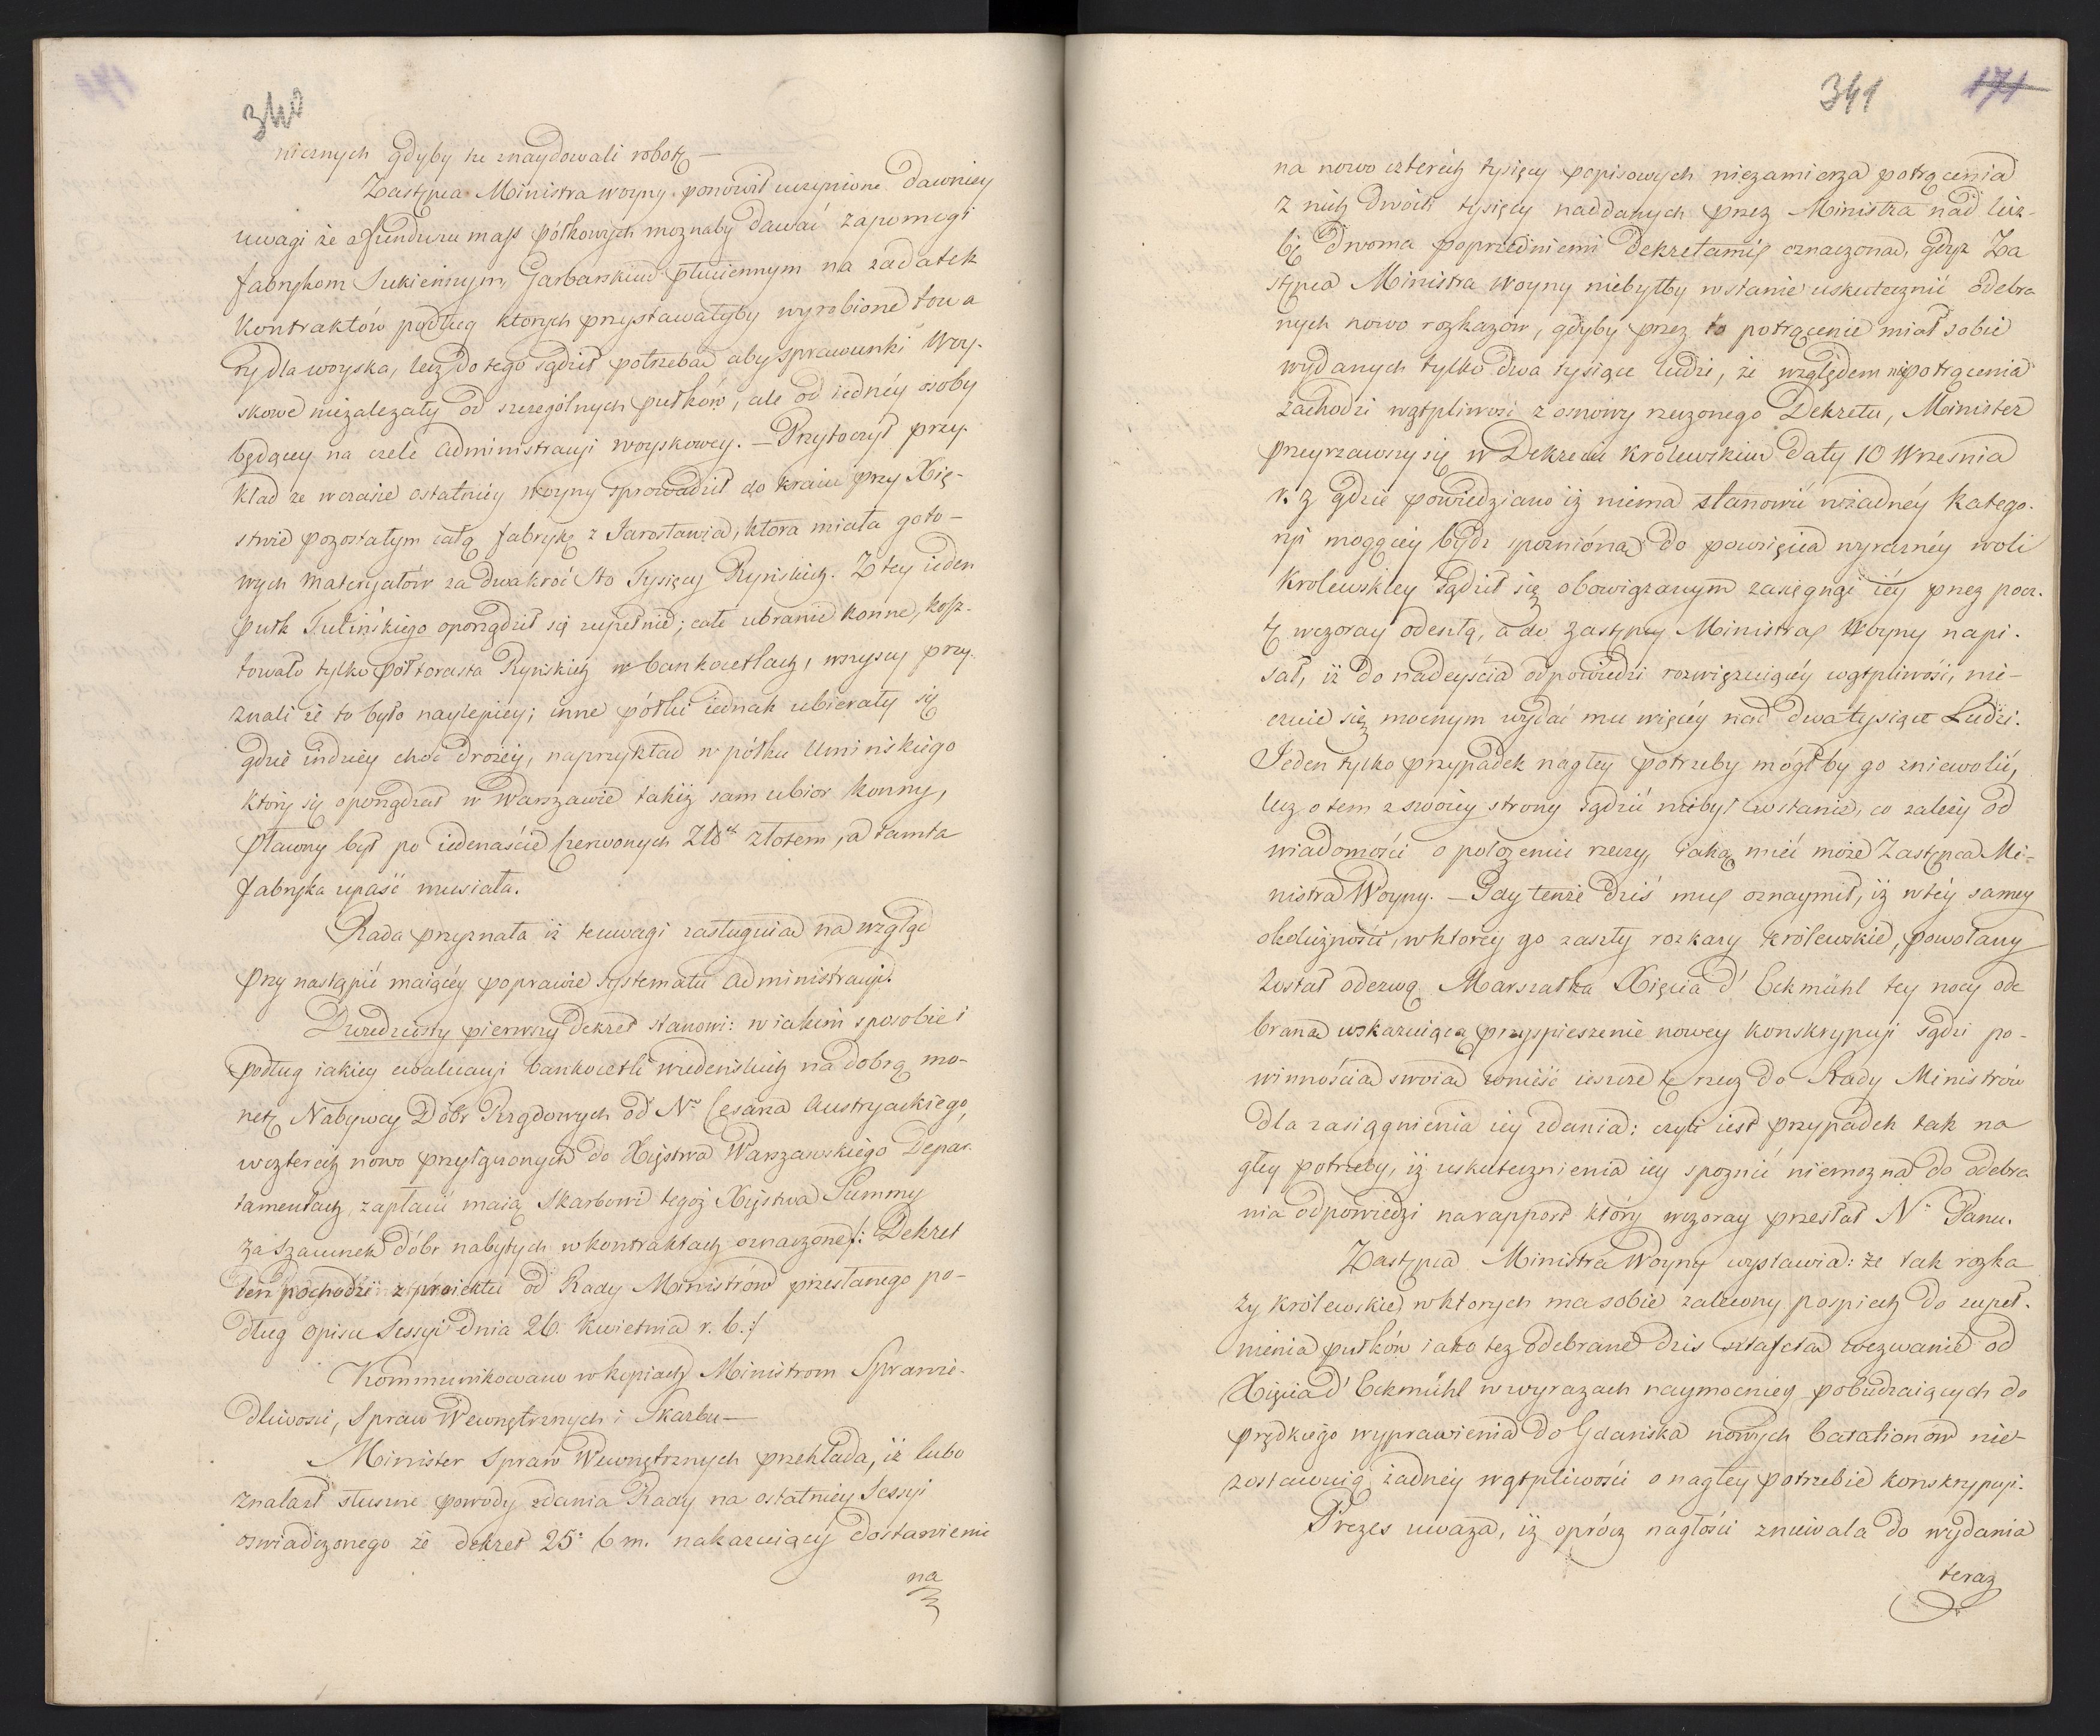 340
nicznych gdyby tu znaydowali robotę —
Zastępca Ministra woyny ponowił uczynione dawniey
uwagi że z funduszu mass półkowych moznaby dawać zapomogi
fabrykom Sukiennym, Garbarskim płuciennym na zadatek
Kontraktów podług ktorych przystawałyby wyrobione towa
ry dla woyska, lecz do tego sądził potrzebą aby sprawunki woy-
skowe niezalezały od szczególnych pułków, ale od iednéy osoby
będącey na czele administracyi woyskowey. — Przytoczył przy-
kład ze wczasie ostatniéy woyny sprowadził do kraiu przy Xię-
stwie pozostałym całą fabrykę z Jarosławia, ktora miała goto-
wych materyałów za dwakroć Sto Tysięcy Ryńskich. Z tey ieden
pułk Tulińskiego oporządził się zupełnie; całe ubranie konne, kosz-
towało tylko półtorasta Ryńskich w bankocetlach, wszyscy przy
znali że to było naylepiey; inne półki iednak ubierały się
gdzie indziey choć drożey, naprzykład w półku Umińskiego
który się oporządzał w Warszawie takiż sam ubior konny,
płacony był po iedenaście czerwonych złotem, a tamta
fabryka upaść musiała.
Rada przyznała iż te uwagi zasługuią na wzgląd
przy nastąpić maiącéy poprawie systematu administracyi.
Dwudziesty pierwszy dekret stanowi: w iakim sposobie i
podług iakiey ewaluacyi bankocetli wiedeńskich na dobrą mo-
netę Nabywcy Dóbr Rządowych od Nº Cesarza Austryackiego,
wczterech nowo przyłączonych do Xięstwa Warszawskiego Depar-
tamentach zapłacić maią Skarbowi tegoż Xięstwa Summy
za szacunek dóbr nabytych w kontraktach oznaczone /: Dekret
ten pochodzi z proiektu od Rady Ministrów przesłanego po-
dług opisu Sessyi dnia 26. Kwietnia r. b. :/
Kommunikowano w kopiach Ministrom Sprawie-
dliwosci, Spraw Wewnętrznych i Skarbu —
Minister Spraw Wewnętrznych przekłada, iż lubo
znalazł słuszne powody zdania Rady na ostatniéy Sessyi
oswiadczonego że dekret 25º b m. nakazuiący dostawienie
na
341 171
na nowo czterech tysięcy popisowych niezamierza potrącenia
z nich dwóch tysięcy naddanych przez Ministra nad licz-
bę dwoma poprzedniemi Dekretami oznaczoną, gdyż Za
stępca Ministra Woyny niebyłby wstanie uskutecznić odebra
nych nowo rozkazów, gdyby przez to potrącenie miał sobie
wydanych tylko dwa tysiące ludzi, że względem niepotrącenia
zachodzi wątpliwość z osnowy rzeczonego Dekretu, Minister
przeyrzawszy się w Dekrecie królewskim daty 10 Wrzesnia
r. z gdzie powiedziano iż niema stanowić wżadnéy katego-
ryi mogącey bydz spoznioną do powzięcia wyraznéy woli
krolewskiey sądził się obowiązanym zasięgnąć iéy przez pocz-
tę wczoray odeszłą, a do Zastępcy Ministra Woyny napi-
sał, iż do nadeyścia odpowiedzi rozwięzuiącéy wątpliwośi, nie-
czuie się mocnym wydać mu więcéy nad dwa tysiące Ludzi.
Jeden tylko przypadek nagłey potrzeby mógłby go zniewolić,
lecz o tem z swoiey strony sądzić niebył wstanie, co zależy od
wiadomości o położeniu rzeczy, iaką mieć może Zastępca Mi-
nistra Woyny. — Gdy tenże dziś mu oznaymił, iż w téy samey
okoliczności, w ktorey go zaszły rozkazy królewskie, powołany
został odezwą Marszałka Xięcia d' Eckmühl tey nocy ode
braną wskazuiącą przyspieszenie nowey konskrypcyi sądzi po-
winnością swoią wnieść ieszcze tę rzecz do Rady Ministrów
dla zasiągnienia iey zdania: czyli iest przypadek tak na
głey potrzeby, iż uskutecznienia iey spoznić niemozna do odebra
nia odpowiedzi na rapport który wczoray przesłał Nº Panu.
Zastępca Ministra Woyny wystawia: że tak rozka
zy królewskie w ktorych ma sobie zalecony pospiech do zupeł-
nienia pułków iako tez odebrane dzis sztafetą wezwanie od
Xięcia d' Eckmühl w wyrazach naymocniey pobudzaiących do
prędkiego wyprawienia do Gdańska nowych batalionów nie-
zostawuią żadnéy wątpliwości o nagłey potrzebie konskrypcyi.
Prezes uważa, iż oprócz nagłości zniewala do wydania
teraz